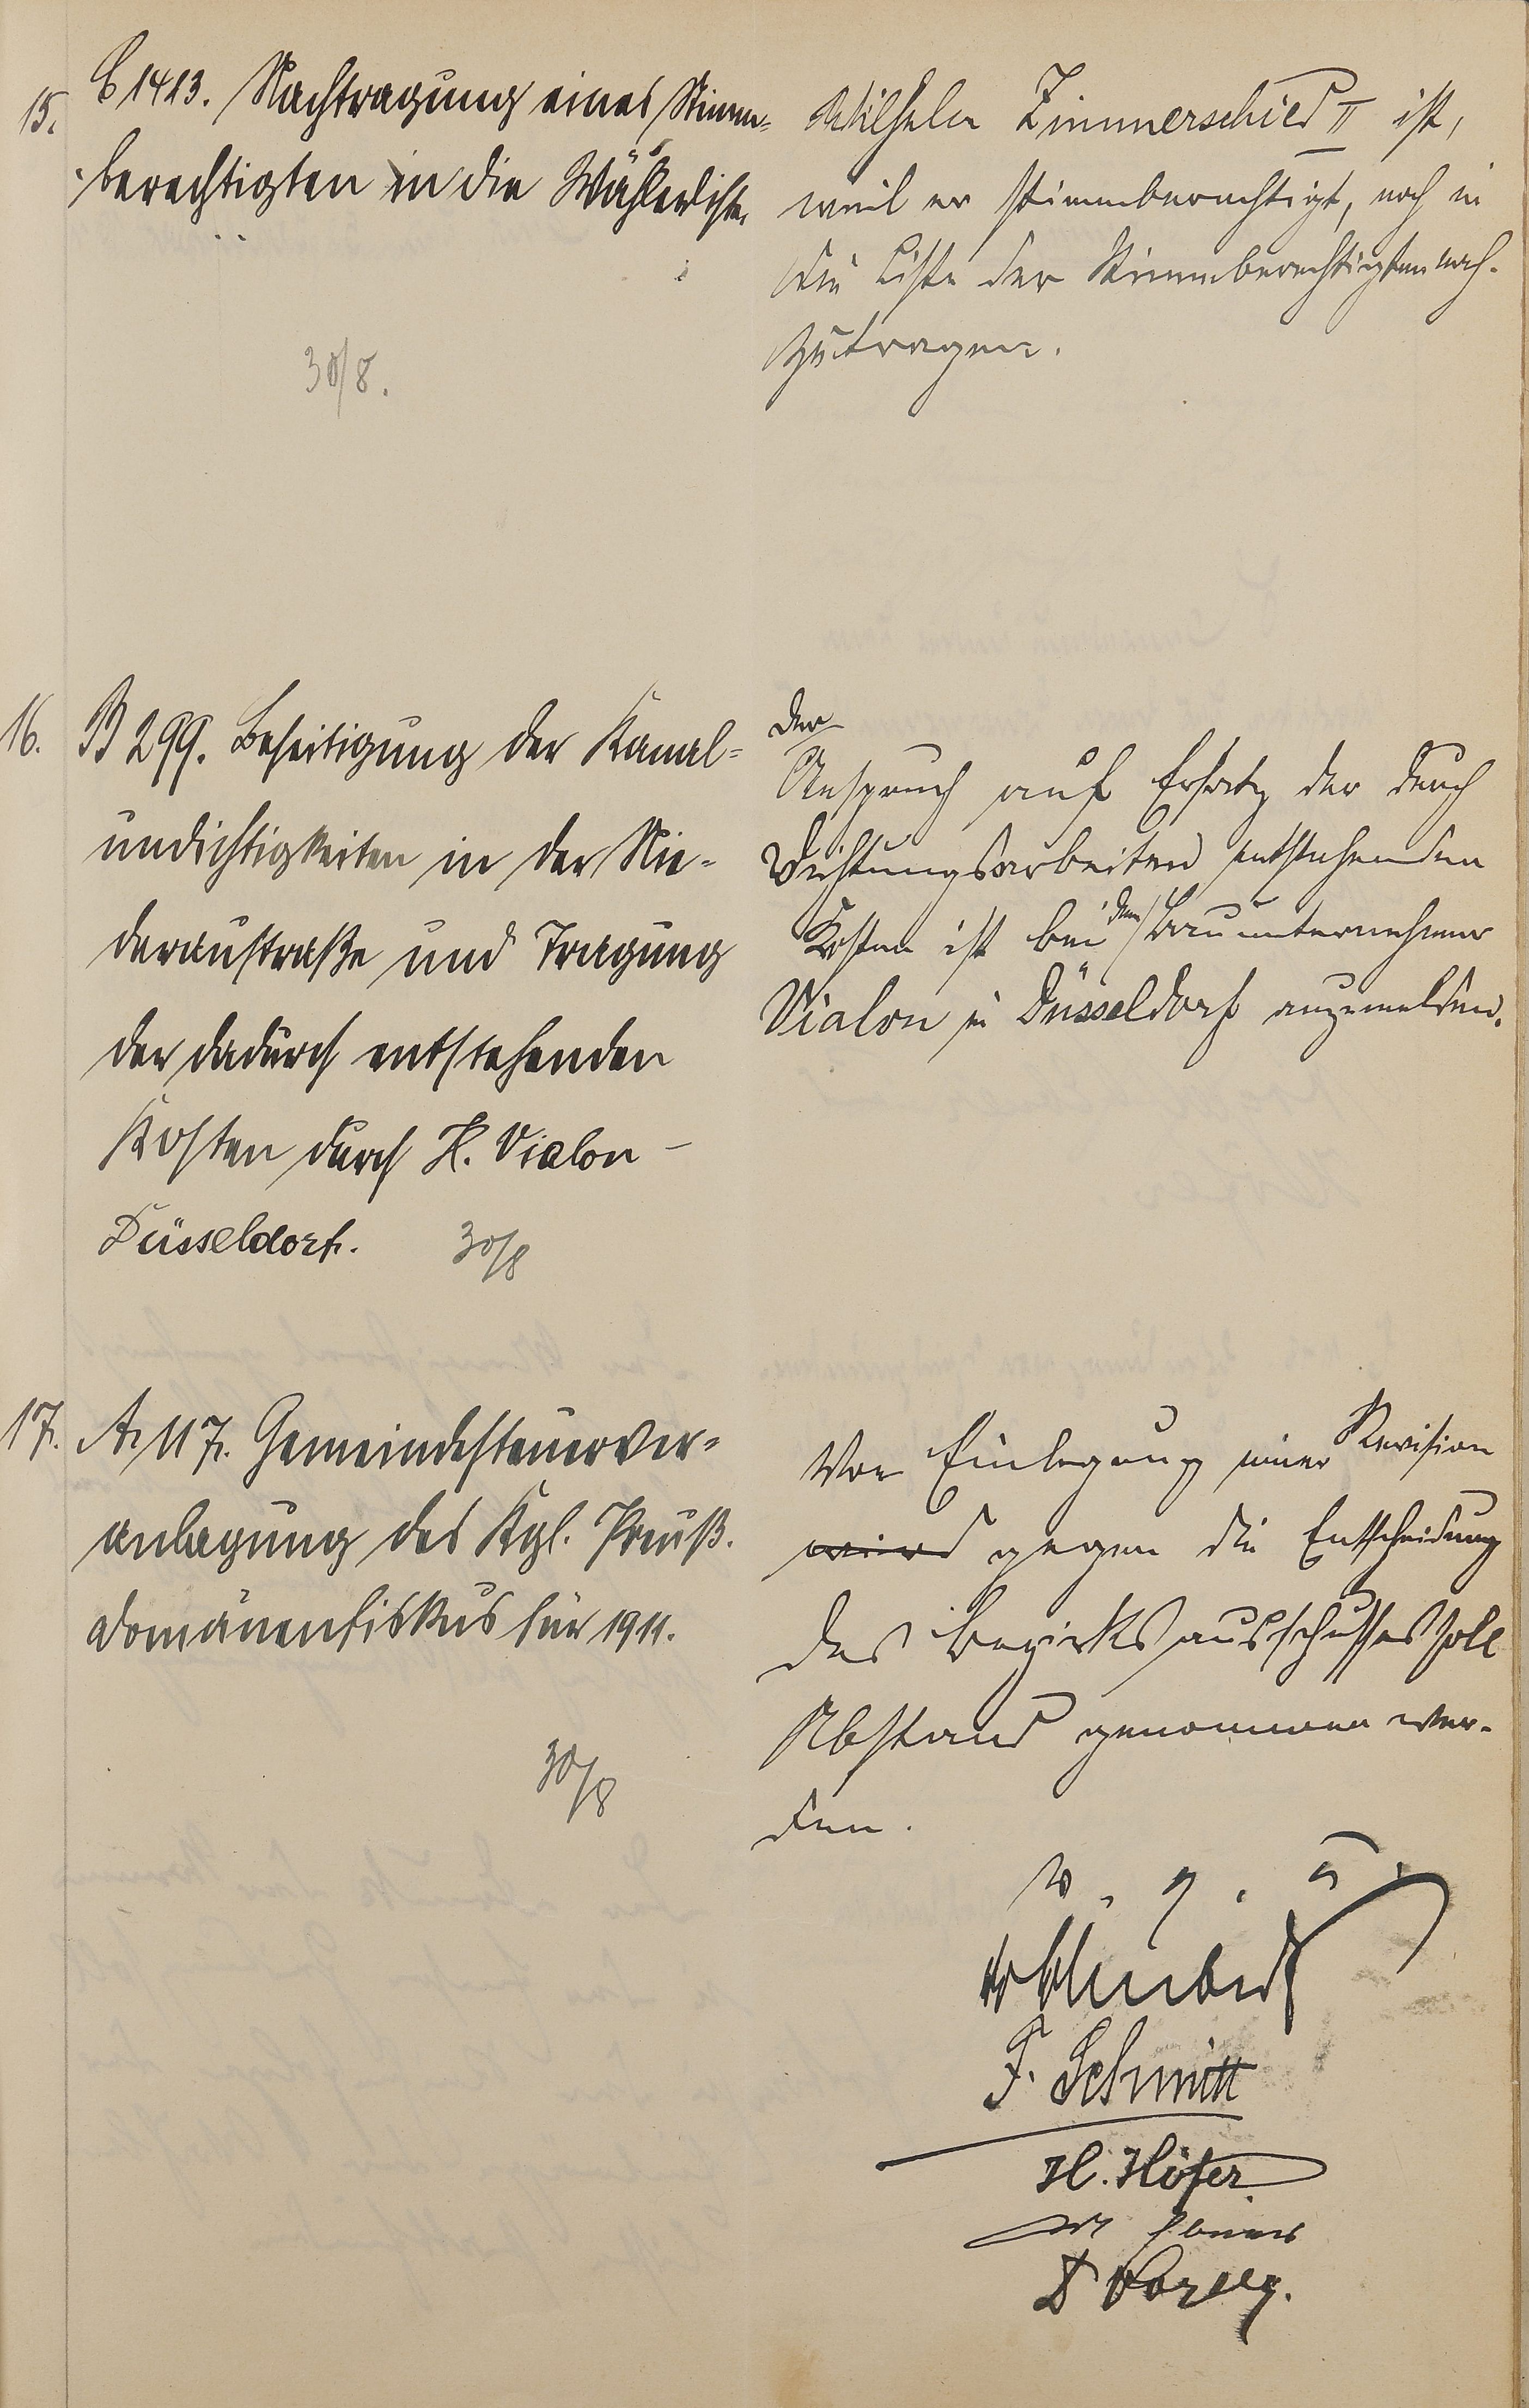 15. C 1413. Nachtragung eines Stimm-
berechtigten in die Wählerliste.
30/8.
Wilhelm Zimmerschied II ist,
weil er stimmberechtigt, noch in
die Liste der Stimmberechtigten nach-
zutragen.
16. B 299. Beseitigung der Kanal-
undichtigkeiten in der Nie-
deraustraße und Tragung
der dadurch entstehenden
Kosten durch H. Vialon -
Düsseldorf. 30/8
Der
Anspruch auf Ersatz der durch
Dichtungsarbeiten entstehenden
Kosten ist bei dem Bauunternehmer
Vialon in Düsseldorf anzumelden.
17. A. 117. Gemeindesteuerver-
anlagung des Kgl. Preuß.
Domänenfiskus für 1911.
30/8
Von Einlegung einer Revision
wird gegen die Entscheidung
des Bezirksausschusses soll
Abstand genommen wer-
den.
v. g. u.
F. Schmitt
H. Höfer